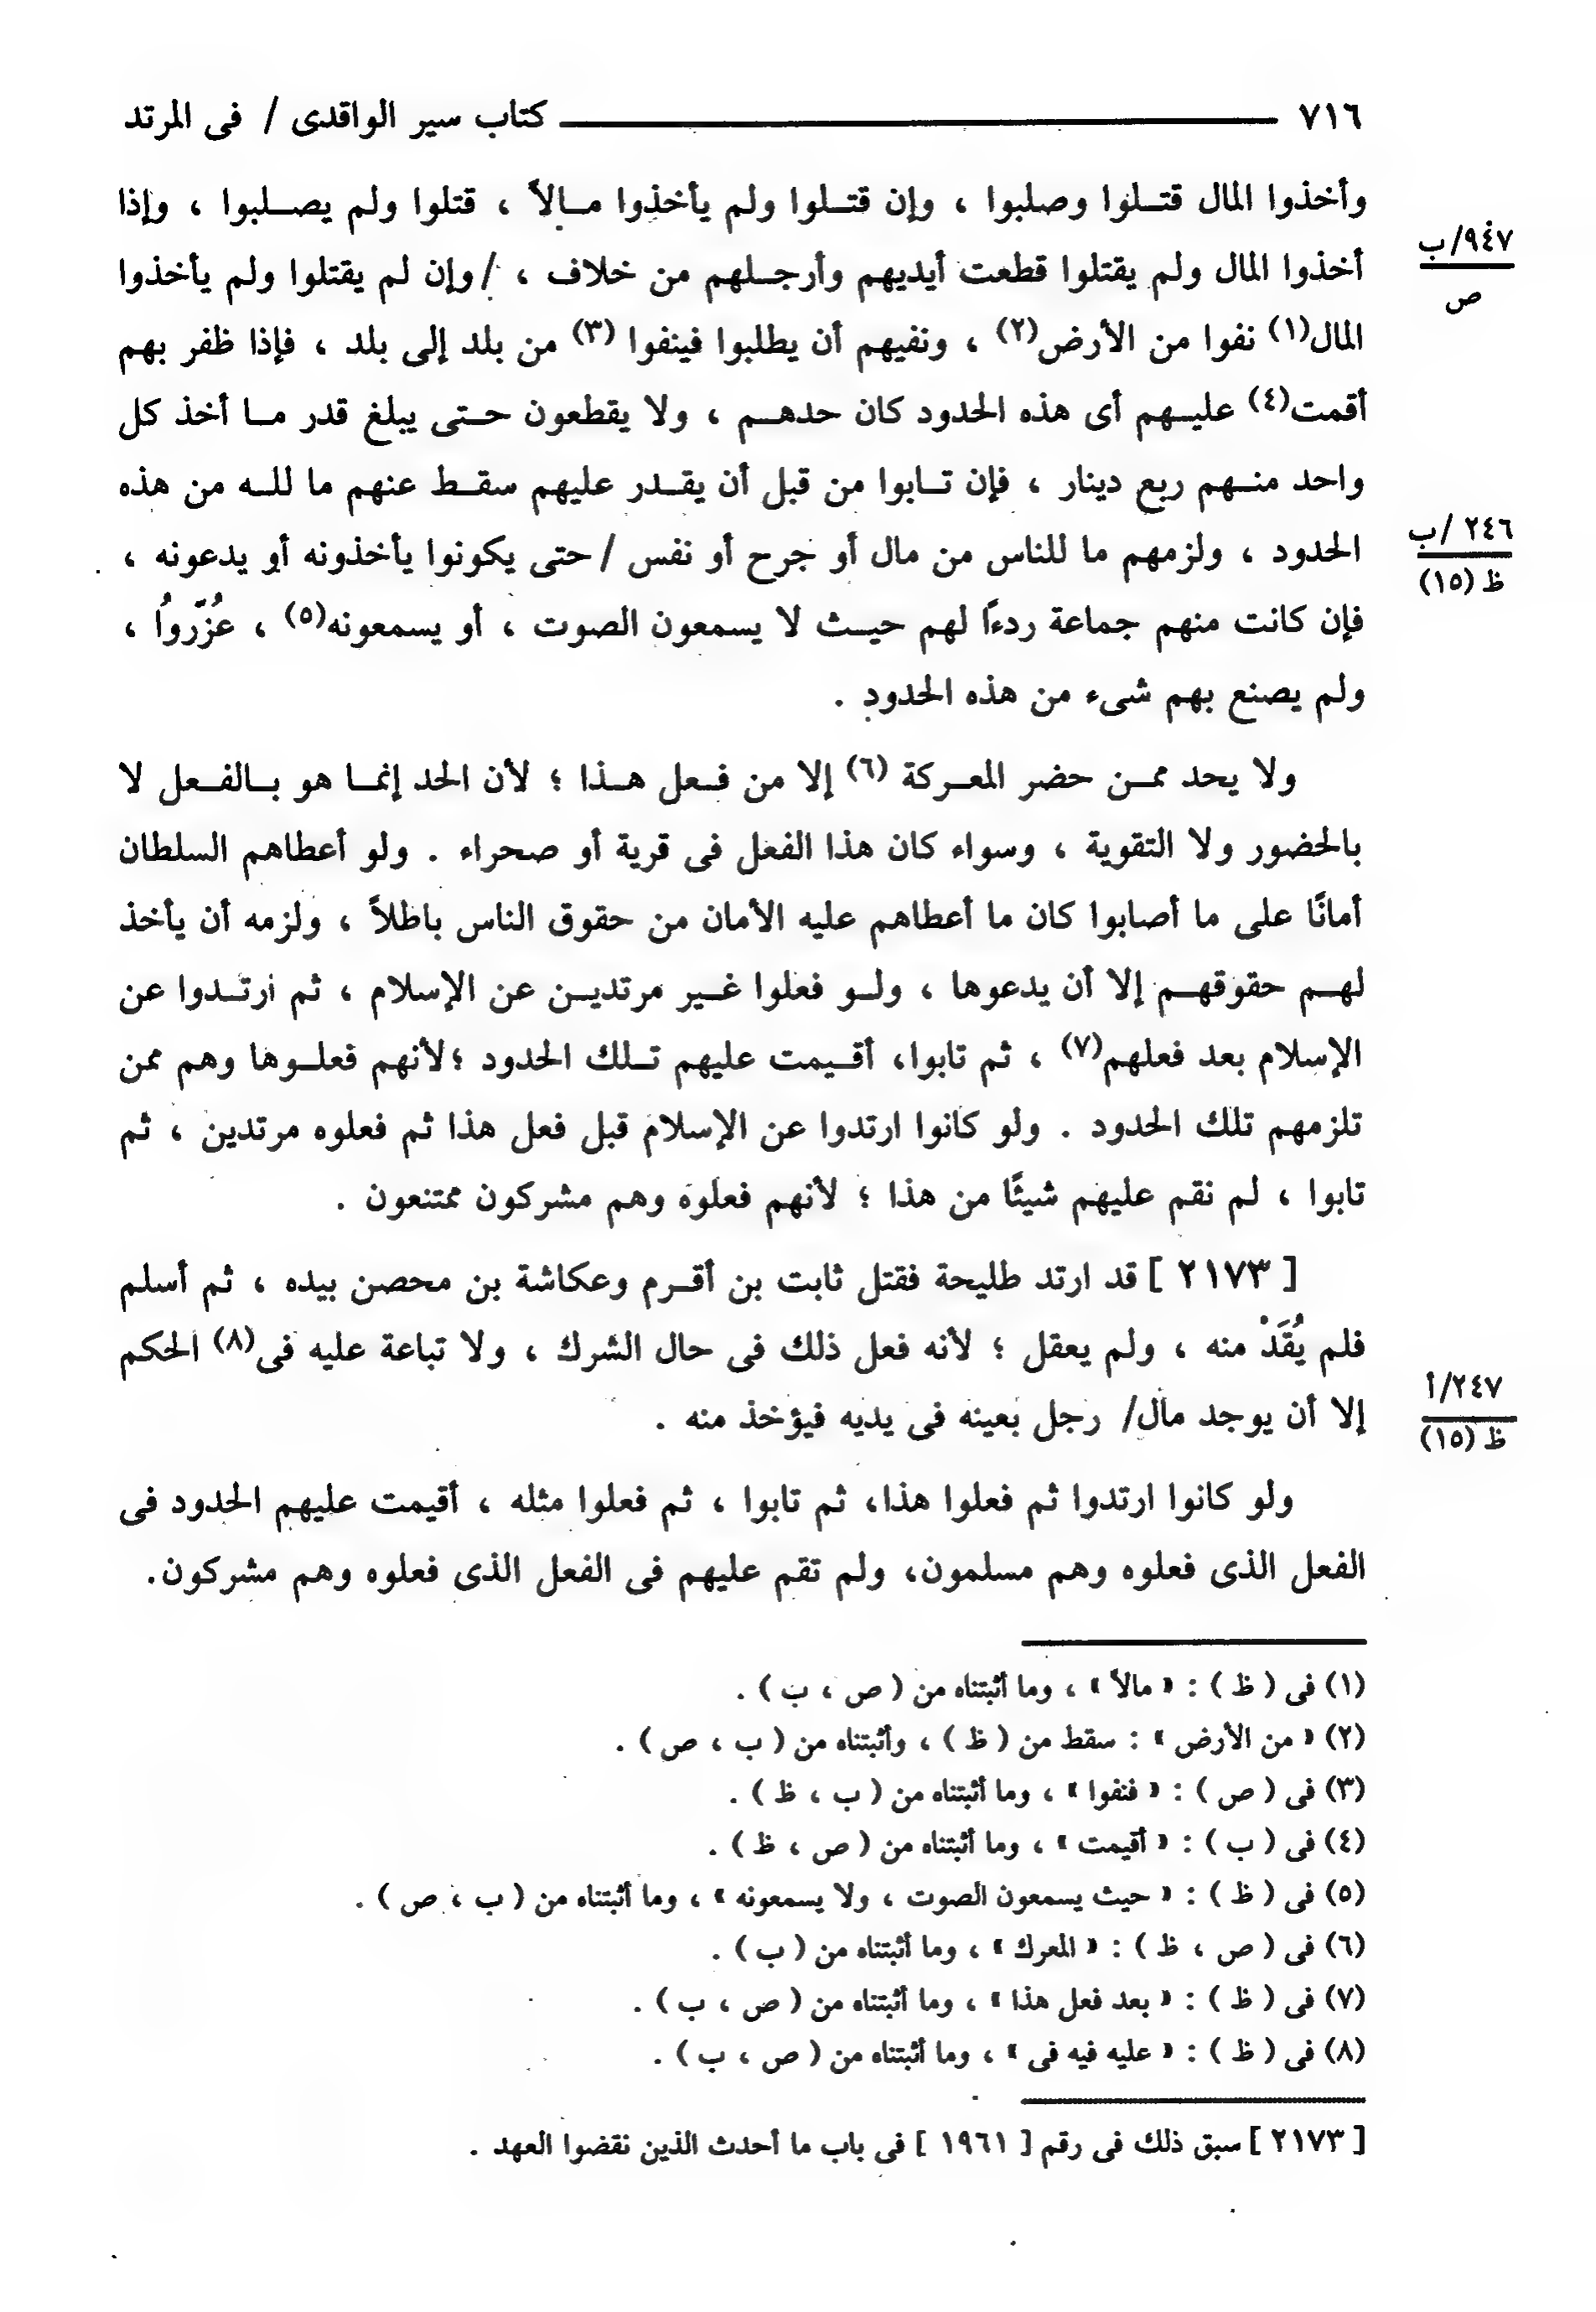 ٧١٦ كتاب سير الواقدى / فى المرتد
وأخذوا المال قتلوا وصلبوا ، وإن قتلوا ولم يأخذوا مالاً ، قتلوا ولم يصلبوا ، وإذا
٩٤٧/ب
ص
أخذوا المال ولم يقتلوا قطعت أيديهم وأرجلهم من خلاف ، / وإن لم يقتلوا ولم يأخذوا
المال(١) نفوا من الأرض(٢) ، ونفيهم أن يطلبوا فينفوا (٣) من بلد إلى بلد ، فإذا ظفر بهم
أقمت(٤) عليهم أى هذه الحدود كان حدهم ، ولا يقطعون حتى يبلغ قدر ما أخذ كل
واحد منهم ربع دينار ، فإن تابوا من قبل أن يقدر عليهم سقط عنهم ما لله من هذه
٢٤٦ /ب
ظ (١٥)
الحدود ، ولزمهم ما للناس من مال أو جرح أو نفس / حتى يكونوا يأخذونه أو يدعونه ،
فإن كانت منهم جماعة ردءًا لهم حيث لا يسمعون الصوت ، أو يسمعونه(٥) ، عُزّرواُ ،
ولم يصنع بهم شىء من هذه الحدود .
ولا يحد ممن حضر المعركة (٦) إلا من فعل هذا ؛ لأن الحد إنما هو بالفعل لا
بالحضور ولا التقوية ، وسواء كان هذا الفعل فى قرية أو صحراء . ولو أعطاهم السلطان
أمانًا على ما أصابوا كان ما أعطاهم عليه الأمان من حقوق الناس باطلاً ، ولزمه أن يأخذ
لهم حقوقهم إلا أن يدعوها ، ولو فعلوا غير مرتدين عن الإسلام ، ثم ارتدوا عن
الإسلام بعد فعلهم(٧) ، ثم تابوا، أقيمت عليهم تلك الحدود ؛لأنهم فعلوها وهم ممن
تلزمهم تلك الحدود . ولو كانوا ارتدوا عن الإسلام قبل فعل هذا ثم فعلوه مرتدين ، ثم
تابوا ، لم نقم عليهم شيئًا من هذا ؛ لأنهم فعلوه وهم مشركون ممتنعون .
[ ٢١٧٣ ] قد ارتد طليحة فقتل ثابت بن أقرم وعكاشة بن محصن بيده ، ثم أسلم
فلم يُقَدْ منه ، ولم يعقل ؛ لأنه فعل ذلك فى حال الشرك ، ولا تباعة عليه فى(٨) الحكم
٢٤٧/أ
ظ (١٥)
إلا أن يوجد مال/ رجل بعينه فى يديه فيؤخذ منه .
ولو كانوا ارتدوا ثم فعلوا هذا، ثم تابوا ، ثم فعلوا مثله ، أقيمت عليهم الحدود فى
الفعل الذى فعلوه وهم مسلمون، ولم تقم عليهم فى الفعل الذى فعلوه وهم مشركون.
(١) فى ( ظ ) : « مالاً » ، وما أثبتناه من ( ص ، ب ) .
(٢) « من الأرض » : سقط من ( ظ ) ، وأثبتناه من ( ب ، ص ) .
(٣) فى ( ص ) : « فنفوا » ، وما أثبتناه من ( ب ، ظ ) .
(٤) فى ( ب ) : « أقيمت » ، وما أثبتناه من ( ص ، ظ ) .
(٥) فى ( ظ ) : « حيث يسمعون الصوت ، ولا يسمعونه » ، وما أثبتناه من ( ب ، ص ) .
(٦) فى ( ص ، ظ ) : « المعرك » ، وما أثبتناه من ( ب ) .
(٧) فى ( ظ ) : « بعد فعل هذا » ، وما أثبتناه من ( ص ، ب ) .
(٨) فى ( ظ ) : « عليه فيه فى » ، وما أثبتناه من ( ص ، ب ) .
[ ٢١٧٣ ] سبق ذلك فى رقم [ ١٩٦١ ] فى باب ما أحدث الذين نقضوا العهد .